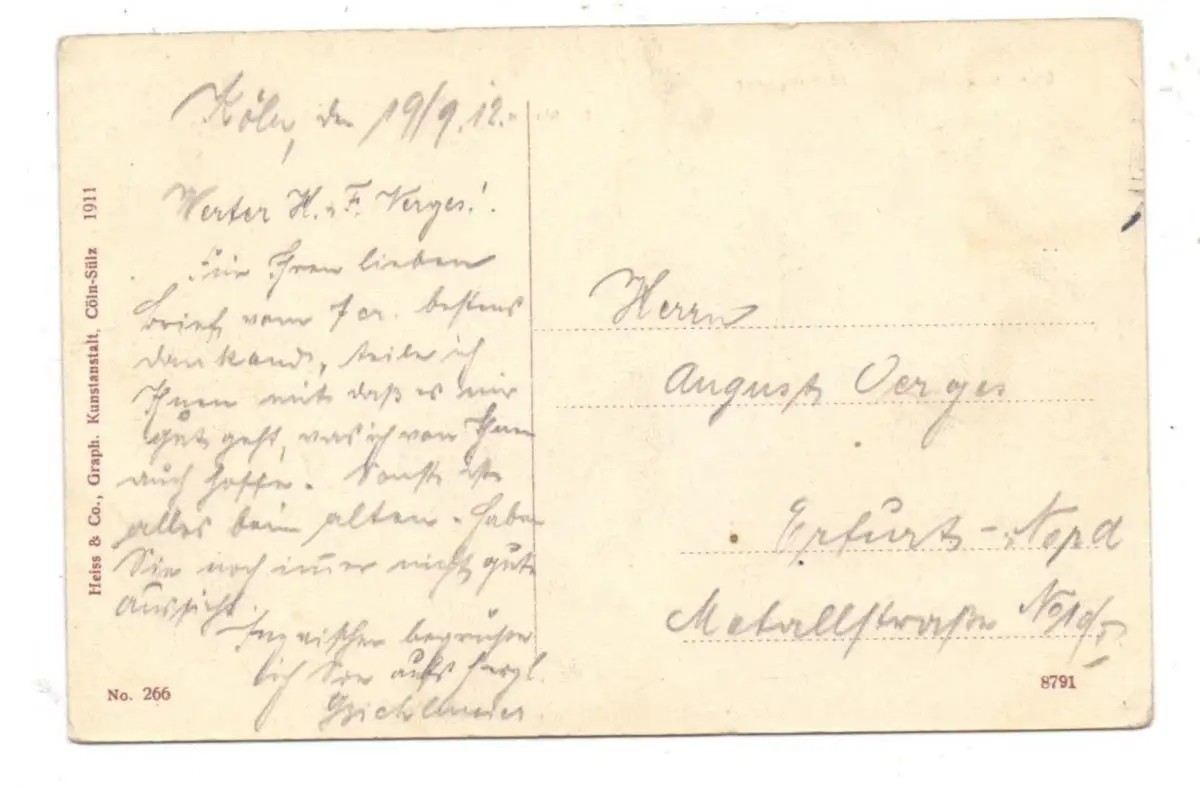 Köln, den 19/9.12.
Werter H. u. F. Verges!
Für Ihren lieben
Brief vom 7 cr. bestens
dankend, teile ich
Ihnen mit daß es mir
gut geht, was ich von Ihnen
auch hoffe. Sonst ist
alles beim alten. Haben
Sie noch immer nicht gute
Aussicht.
Inzwischen begrüße
ich Sie aufs herzl.
Herrn
August Verges
Erfurt-Nord
Metallstraße
Heiss & Co., Graph. Kunstanstalt, Cöln-Sülz 1911
No. 266
8791